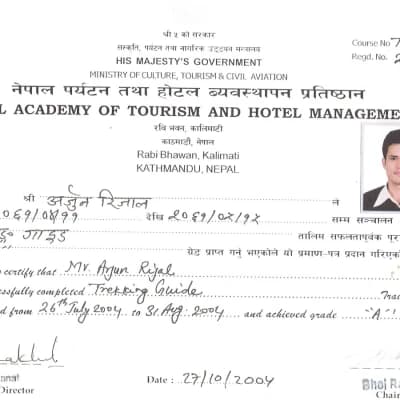 श्री ५ को सरकार
संस्कृति, पर्यटन तथा नागरिक उड्डयन मन्त्रालय
HIS MAJESTY'S GOVERNMENT
Course No
MINISTRY OF CULTURE, TOURISM & CIVIL AVIATION
Regd. No.
नेपाल पर्यटन तथा होटल व्यवस्थापन प्रतिष्ठान
L ACADEMY OF TOURISM AND HOTEL MANAGEME
रवि भवन, कालिमाटी
काठमाडौं, नेपाल
Rabi Bhawan, Kalimati
KATHMANDU, NEPAL
श्री अर्जुन रिजाल ले
देखि सम्म सञ्चालन
गाइड तालिम सफलतापूर्वक
ग्रेड प्राप्त गर्नु भएकोले यो प्रमाण-पत्र प्रदान गरिएको
certify that Mr. Arjun Rijal
ssfully completed Trekking Guide Trai
d from 26th July 2004 to 31 Aug. 2004 and achieved grade "A"
Date : 27/10/2004
Director
Bhoj Ra
Chair